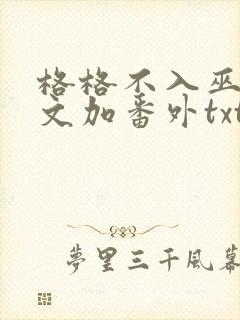 格格不入巫
文加番外txt
夢里三千風幕